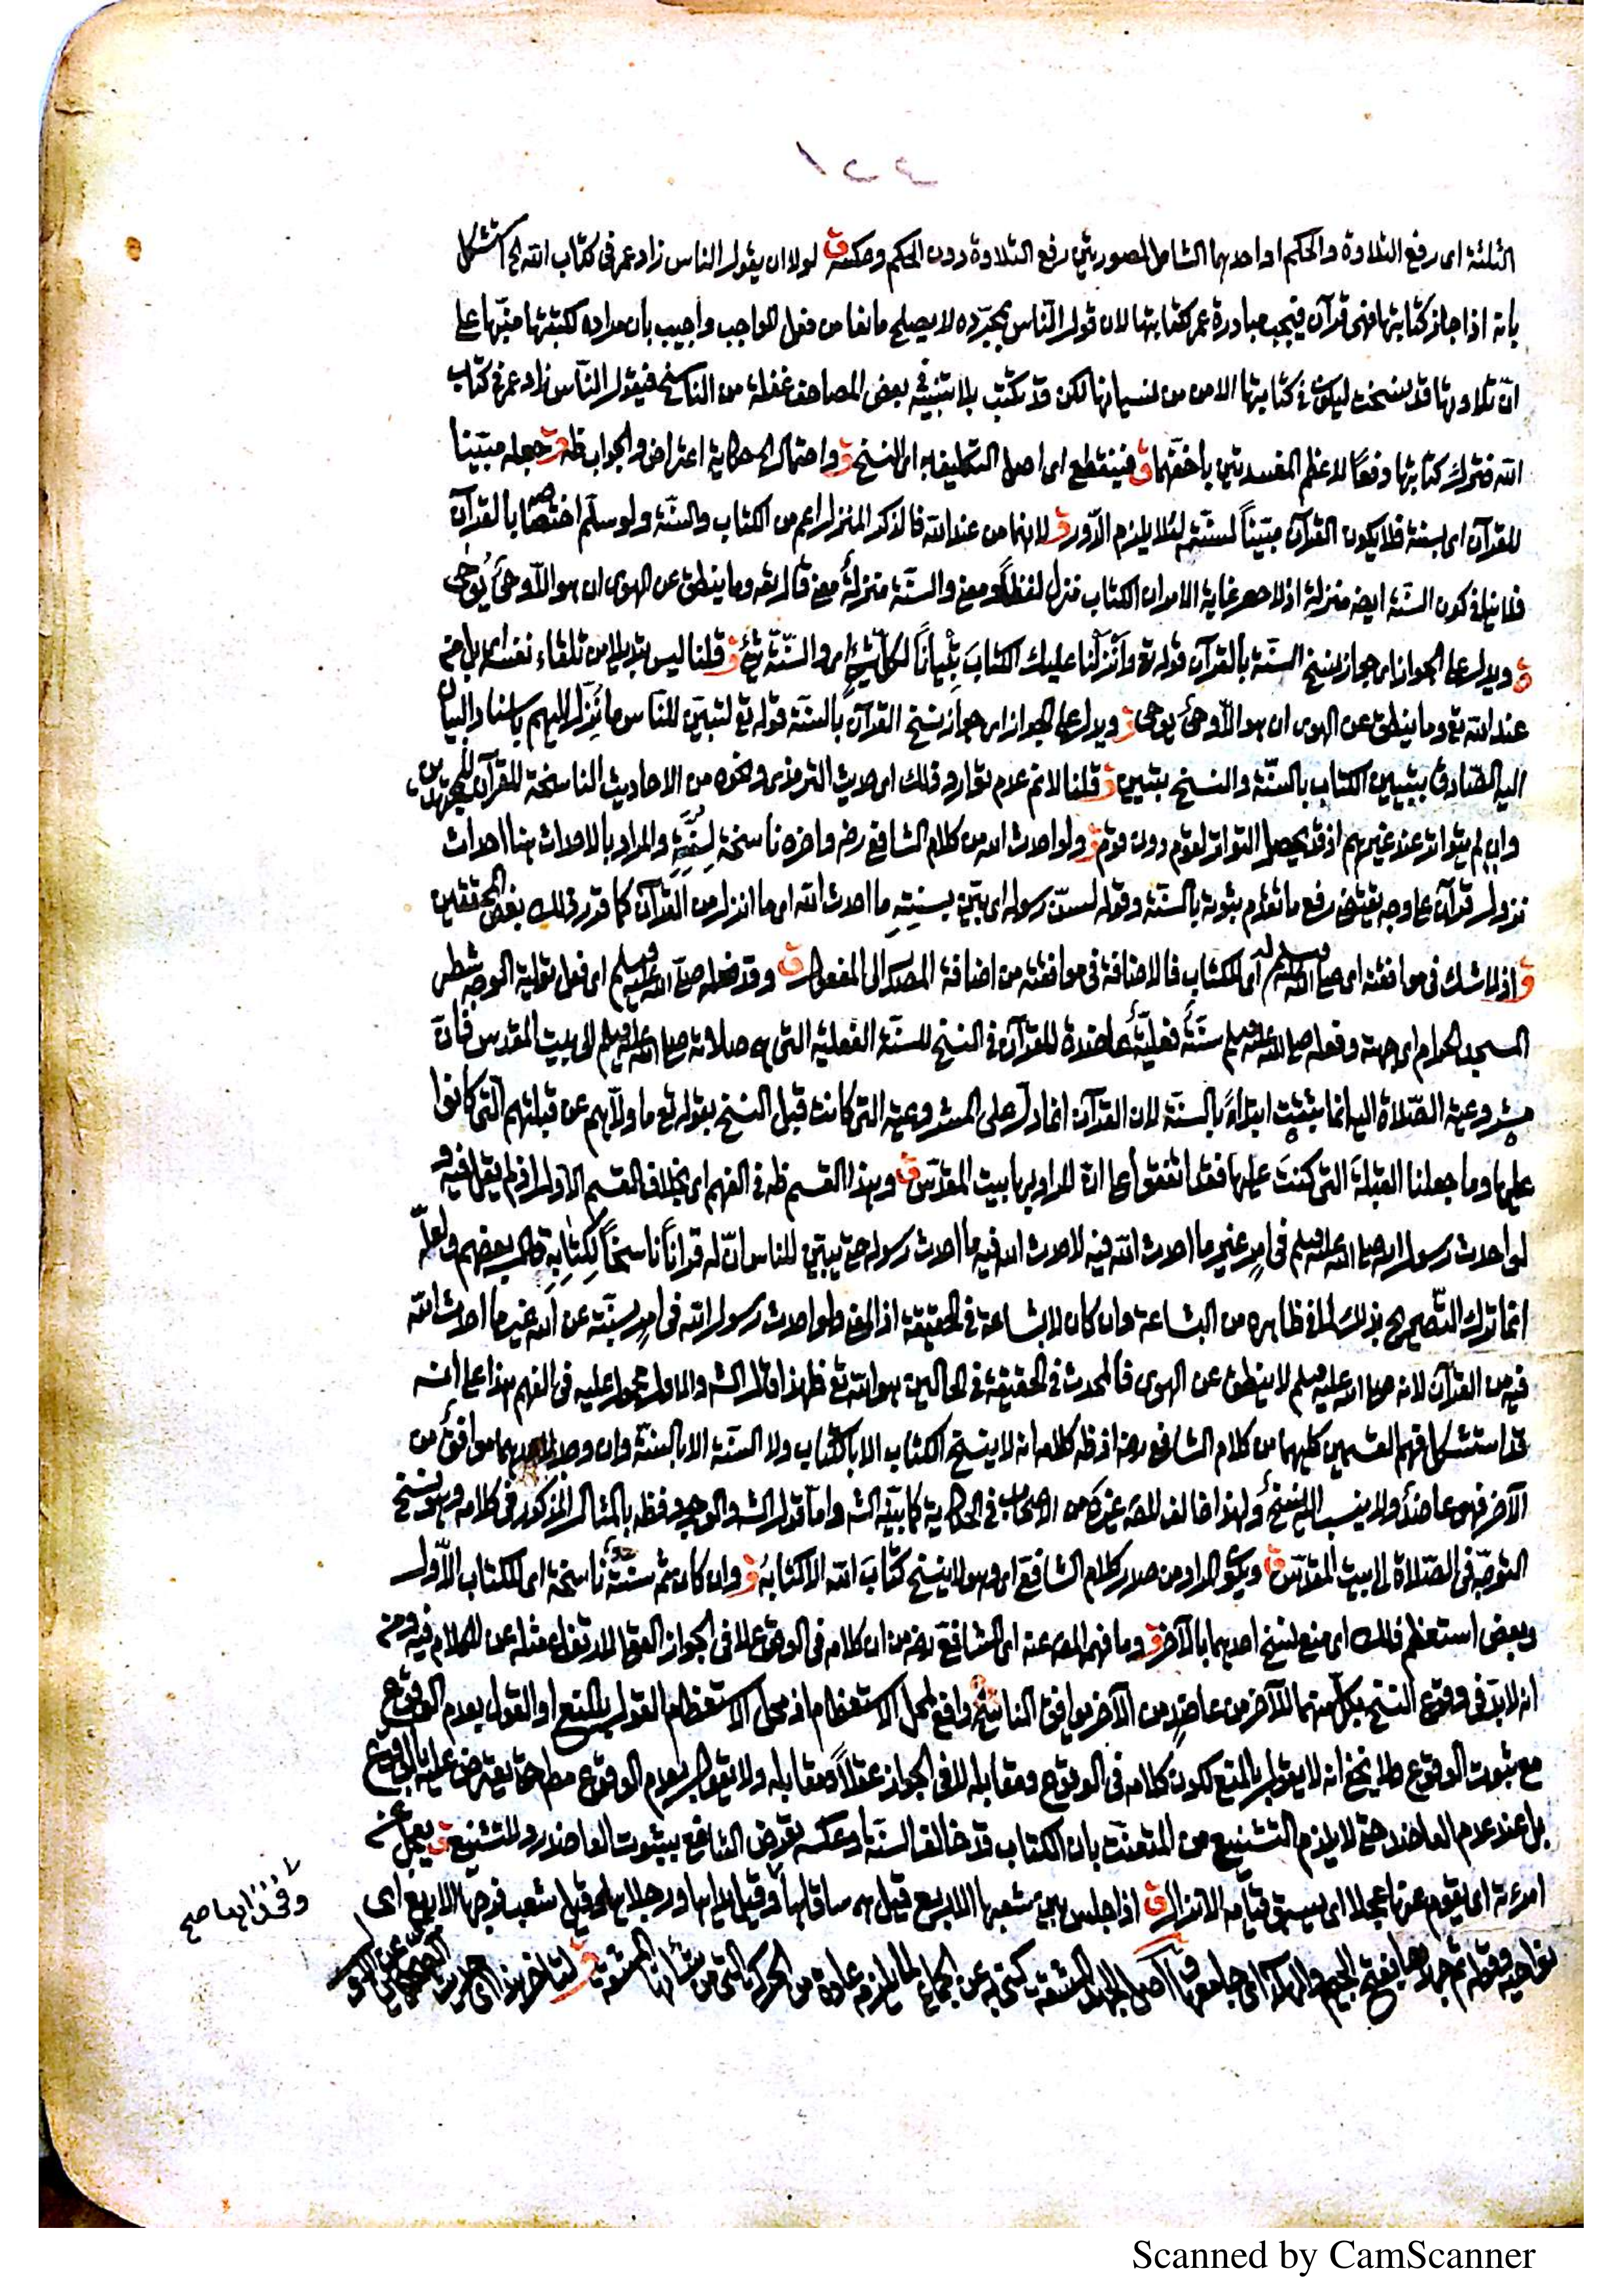 ١٢٤
الثلثة اى رفع التلاوة والحكم او احدهما الشامل لصورتين رفع التلاوة دون الحكم وعكسه ق لولا ان يقول الناس زاد عمر فى كتاب الله الخ استشكل
بانه اذا جاز كتابتها فهى قرآن فيجب مبادرة عمر كتابتها لان قول الناس بمجرّده لا يصلح مانعا من فعل الواجب واجيب بان مراده لكتبتها منبّها على
انّ تلاوتها قد نسخت ليكون فى كتابتها الامن من نسيانها لكن قد تكتب بلا تنبيه فى بعض المصاحف غفلة من الناسخ فيقول النّاس زاد عمر فى كتاب
الله فترك كتابتها دفعًا لاعظم المفسدتين باخفّهما ق فينقطع اى اصل التكليف به اى النسخ ق واحتمال الخ حكاية اعتراض والجواب ظه ق جعله مبيّنا
للقرآن اى بسنة فلا يكون القرآن مبيّناً لسنّته لئلا يلزم الدّور ق لانهما من عند الله فالذكر المنزل اعم من الكتاب والسنّة ولو سلّم اختصاصه بالقرآن
فلا ينافى كون السنّة ايضه منزلة اذ لا حصر غاية الامر ان الكتاب منزل لفظاً ومعنى والسنّة منزلةٌ معنى قال تعه وما ينطق عن الهوى ان هو الّا وحىٌ يُوحى
ق ويدل على الجواز اى جواز نسخ السنّة بالقرآن قوله تع وأنزلنا عليك الكتابَ تِبْيانًا لكلّ شئٍ اى والسّنّة شئ ق قلنا ليس بتبديل من تلقاء نفسه اى بل من
عند الله تع وما ينطق عن الهوى ان هو الّا وحىٌ يوحى ق ويدل على الجواز اى جواز نسخ القرآن بالسنّة قوله تع لتبيّن للنّاس ما نُزّل اليهم باسناد البيان
اليه الصّادق بتبيين الكتاب بالسنّة والنسخ تبيين ق قلنا لا نم عدم تواتر ذلك اى حديث الترمذى ونحوه من الاحاديث الناسخة للقرآن للمجتهدين
وان لم يتواتر عند غيرهم اذ قد يحصل التواتر لقوم دون قوم ق ولو احدث الله من كلام الشافعى رضه واخره ناسخة لِسُنّتِهِ والمراد بالاحداث هنا احداث
نزول قرآن على وجه يقتضى رفع ما تقدم ثبوته بالسنّة وقوله لسنّ رسوله اى بيّن بسنتِهِ ما احدث الله اى ما انزل من القرآن كما قرر ذلك بعض المحققين
ق اذ لا شك فى موافقته اى صلى الله عليه وسلم له اى للكتاب فالاضافة فى موافقته من اضافة المصدر الى المفعول ق وقد فعله صلى الله عليه وسلم اى فعل تولية الوجه شطر
المسجد الحرام اى جهته وفعله صلى الله عليه وسلم سنّةٌ فعليّةٌ عاضدة للقرآن فى النسخ للسنّة الفعلية التى هى صلاته صلى الله عليه وسلم الى بيت المقدس فانّ
مشروعية الصّلاة اليه انما يثبت ابتداءً بالسنّة لان القرآن انما دلّ على المشروعية التى كانت قبل النسخ بقوله تع ما ولّاهم عن قبلتهم الّتى كانوا
عليها وما جعلنا القبلةَ التى كنتَ عليها فقد اتفقوا على انّ المراد بها بيت المقدّس ق وهذا القسم ظه فى الفهم اى بخلاف القسم الاول اذ لم يقل فيه و
لو احدث رسول الله صلى الله عليه وسلم فى امر غير ما احدث الله فيه لاحدث الله فيه ما احدث رسوله حتى يبيّن للناس انّ له قرآنًا ناسخًا لكتابِهِ قال بعضهم ولعلّه
انما ترك التّصريح بذلك لما فى ظاهره من البشاعة وان كان لا بشاعة فى الحقيقة اذ المعنى ولو احدث رسول الله فى امر بسنّته عن الله غير ما احدث الله
فيه من القرآن لانه صلى الله عليه وسلم لا ينطق عن الهوى فالمحدث فى الحقيقة فى الحالين هو الله تع فلهذا قال الشه والاول محمول عليه فى الفهم هذا على انه
قد استشكل فهم القسمين كليهما من كلام الشافعى رضه اذ ظه كلامه انه لا ينسخ الكتاب الا بالكتاب ولا السنّة الا بالسنّة وان وجد لاحدهما موافقٌ من
الآخر فهو عاضدٌ ولا ينسب اليه نسخٌ ولهذا خالف المصه غيره من الاصحاب فى الحكاية كما بيّنه الشه واما قول الشه والوجود فظه بالمثال المذكور فى كلامه وهو نسخ
التوجّه فى الصّلاة الى بيت المقدّس ق ويكون المراد من صدر كلام الشافعى اى وهو لا ينسخ كتابَ الله الا كتابُهُ ق وان كان ثم سنّةٌ ناسخة اى للكتاب الاول
وبعض استعظم ذلك اى منع نسخ احدهما بالآخر ق وما فهمه المصه عنه اى الشافعى رضه من ان كلامه فى الوقوع لا فى الجواز
انه لا بدّ فى وقوع النسخ بكلّ منهما للآخر من عاضدٍ من الآخر موافق الناسخ دافع لمحل الاستعظام اذ محل الاستعظام القول بالمنع او القول بعدم الوقوع
مع ثبوت الوقوع ولا يخفى انه لا يقول بالمنع لكون كلامه فى الوقوع ومقابله لا فى الجواز عقلاً ومقابله ولا يقول بعدم الوقوع مطلقا حتى يعترض عليه بالوقوع
بل عند عدم العاضد حتى لا يلزم التشنيع من المتعنّت بان الكتاب قد خالف السنّة وعكسه
امرءته اى يقوم عنها عجلا اى يسبق قيامه الانزال ق اذا جلس بين شعبها الاربع قيل هى ساقاها وقيل يداها ورجلاها وقيل شعب فرجها الاربع اى
نواحيه وقوله ثم جهدها بفتح الجيم والهاء اى جامعها